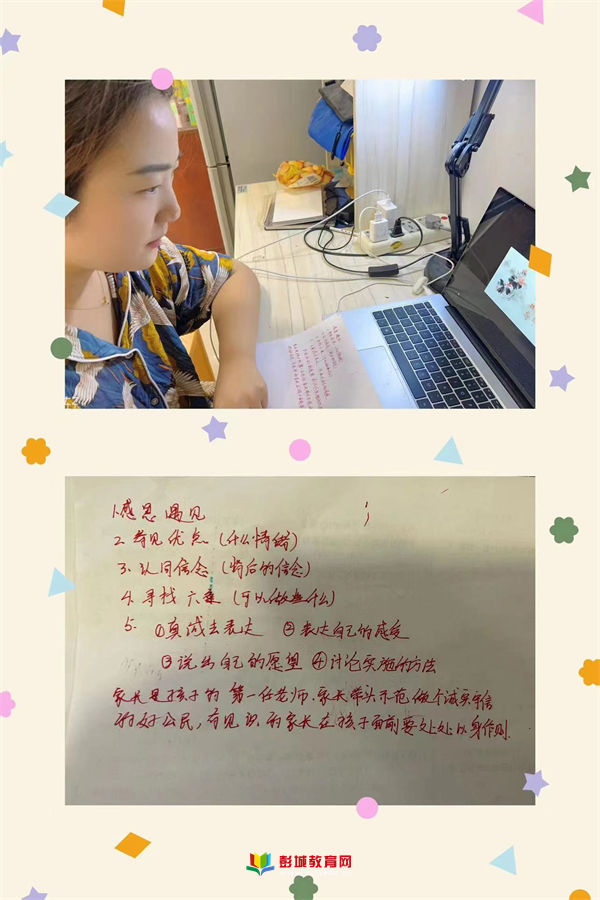 1.感恩遇见
2.看见优点(什么情绪)
3.认同信念(背后的信念)
4.寻找 (可以做些什么)
5. ①真诚去表达 ②表达自己的感受
③说出自己的愿望 ④讨论实施的方法
家长是孩子的第一任老师.家长带头示范,做个诚实守信
的好公民,有见识的家长在孩子面前要处处以身作则.
彭城教育网